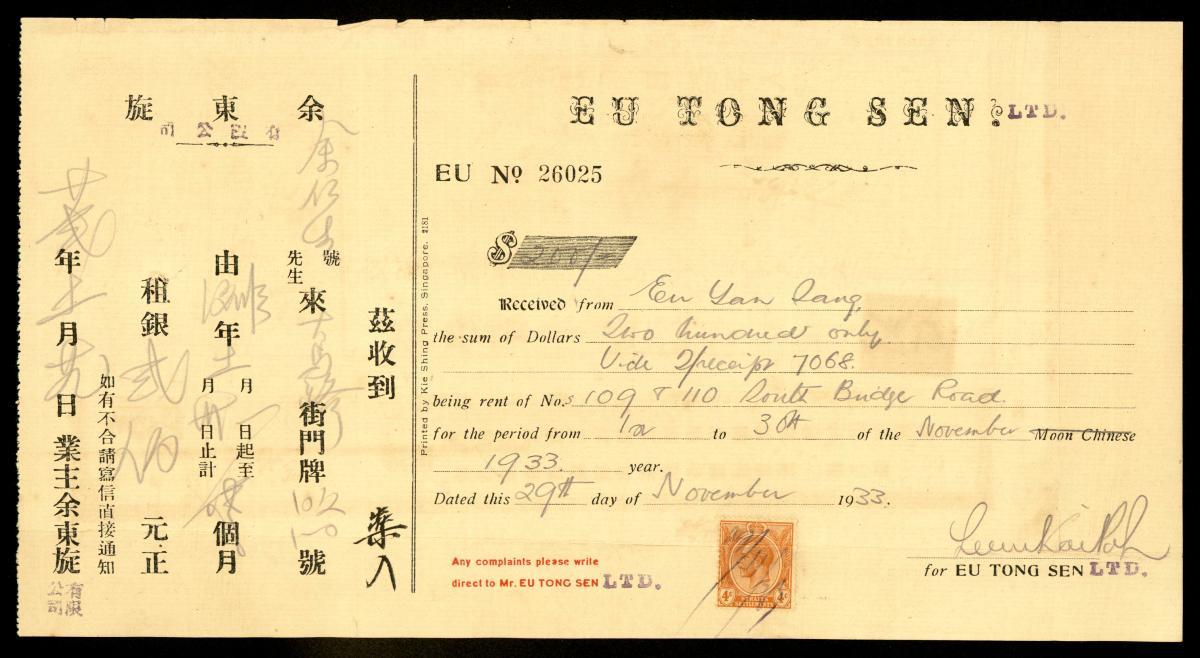 余東旋
有限公司
茲收到
余仁生
號
先生
來
街門牌
號
由
年
月
日起至
月
日止計
個月
租銀
弍伯
元正
如有不合請寫信直接通知
年
月
日
業主余東旋
有限公司
EU TONG SEN. LTD.
EU No 26025
Printed by Kie Shing Press, Singapore. 2181
$ 200/-
Received from Eu Yan Sang
the sum of Dollars Two hundred only
Vide 7068.
being rent of No.s 109 & 110 South Bridge Road.
for the period from 1st to 30th of the November Moon Chinese
1933. year.
Dated this 29th day of November 1933.
for EU TONG SEN LTD.
Any complaints please write
direct to Mr. EU TONG SEN LTD.
4c 4c
STRAITS
SETTLEMENTS